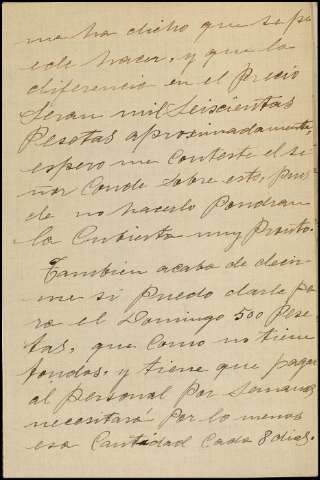 me ha dicho que se pu
ede hacer, y que la
diferencia en el Precio
Seran mil Seiscientas
Pesetas aproximadamente,
espero me Conteste el Se
ñor Conde Sobre esto, pues
de no hacerlo Pondran
la Cubierta muy Pronto.
Tambien acaba de decir
me si puedo darle pa
ra el Domingo 500 Pese
tas, que Como no tiene
fondos, y tiene que pagar
al Personal Por Semanas
necesitará Por lo menos
esa Cantidad Cada 8 dias.